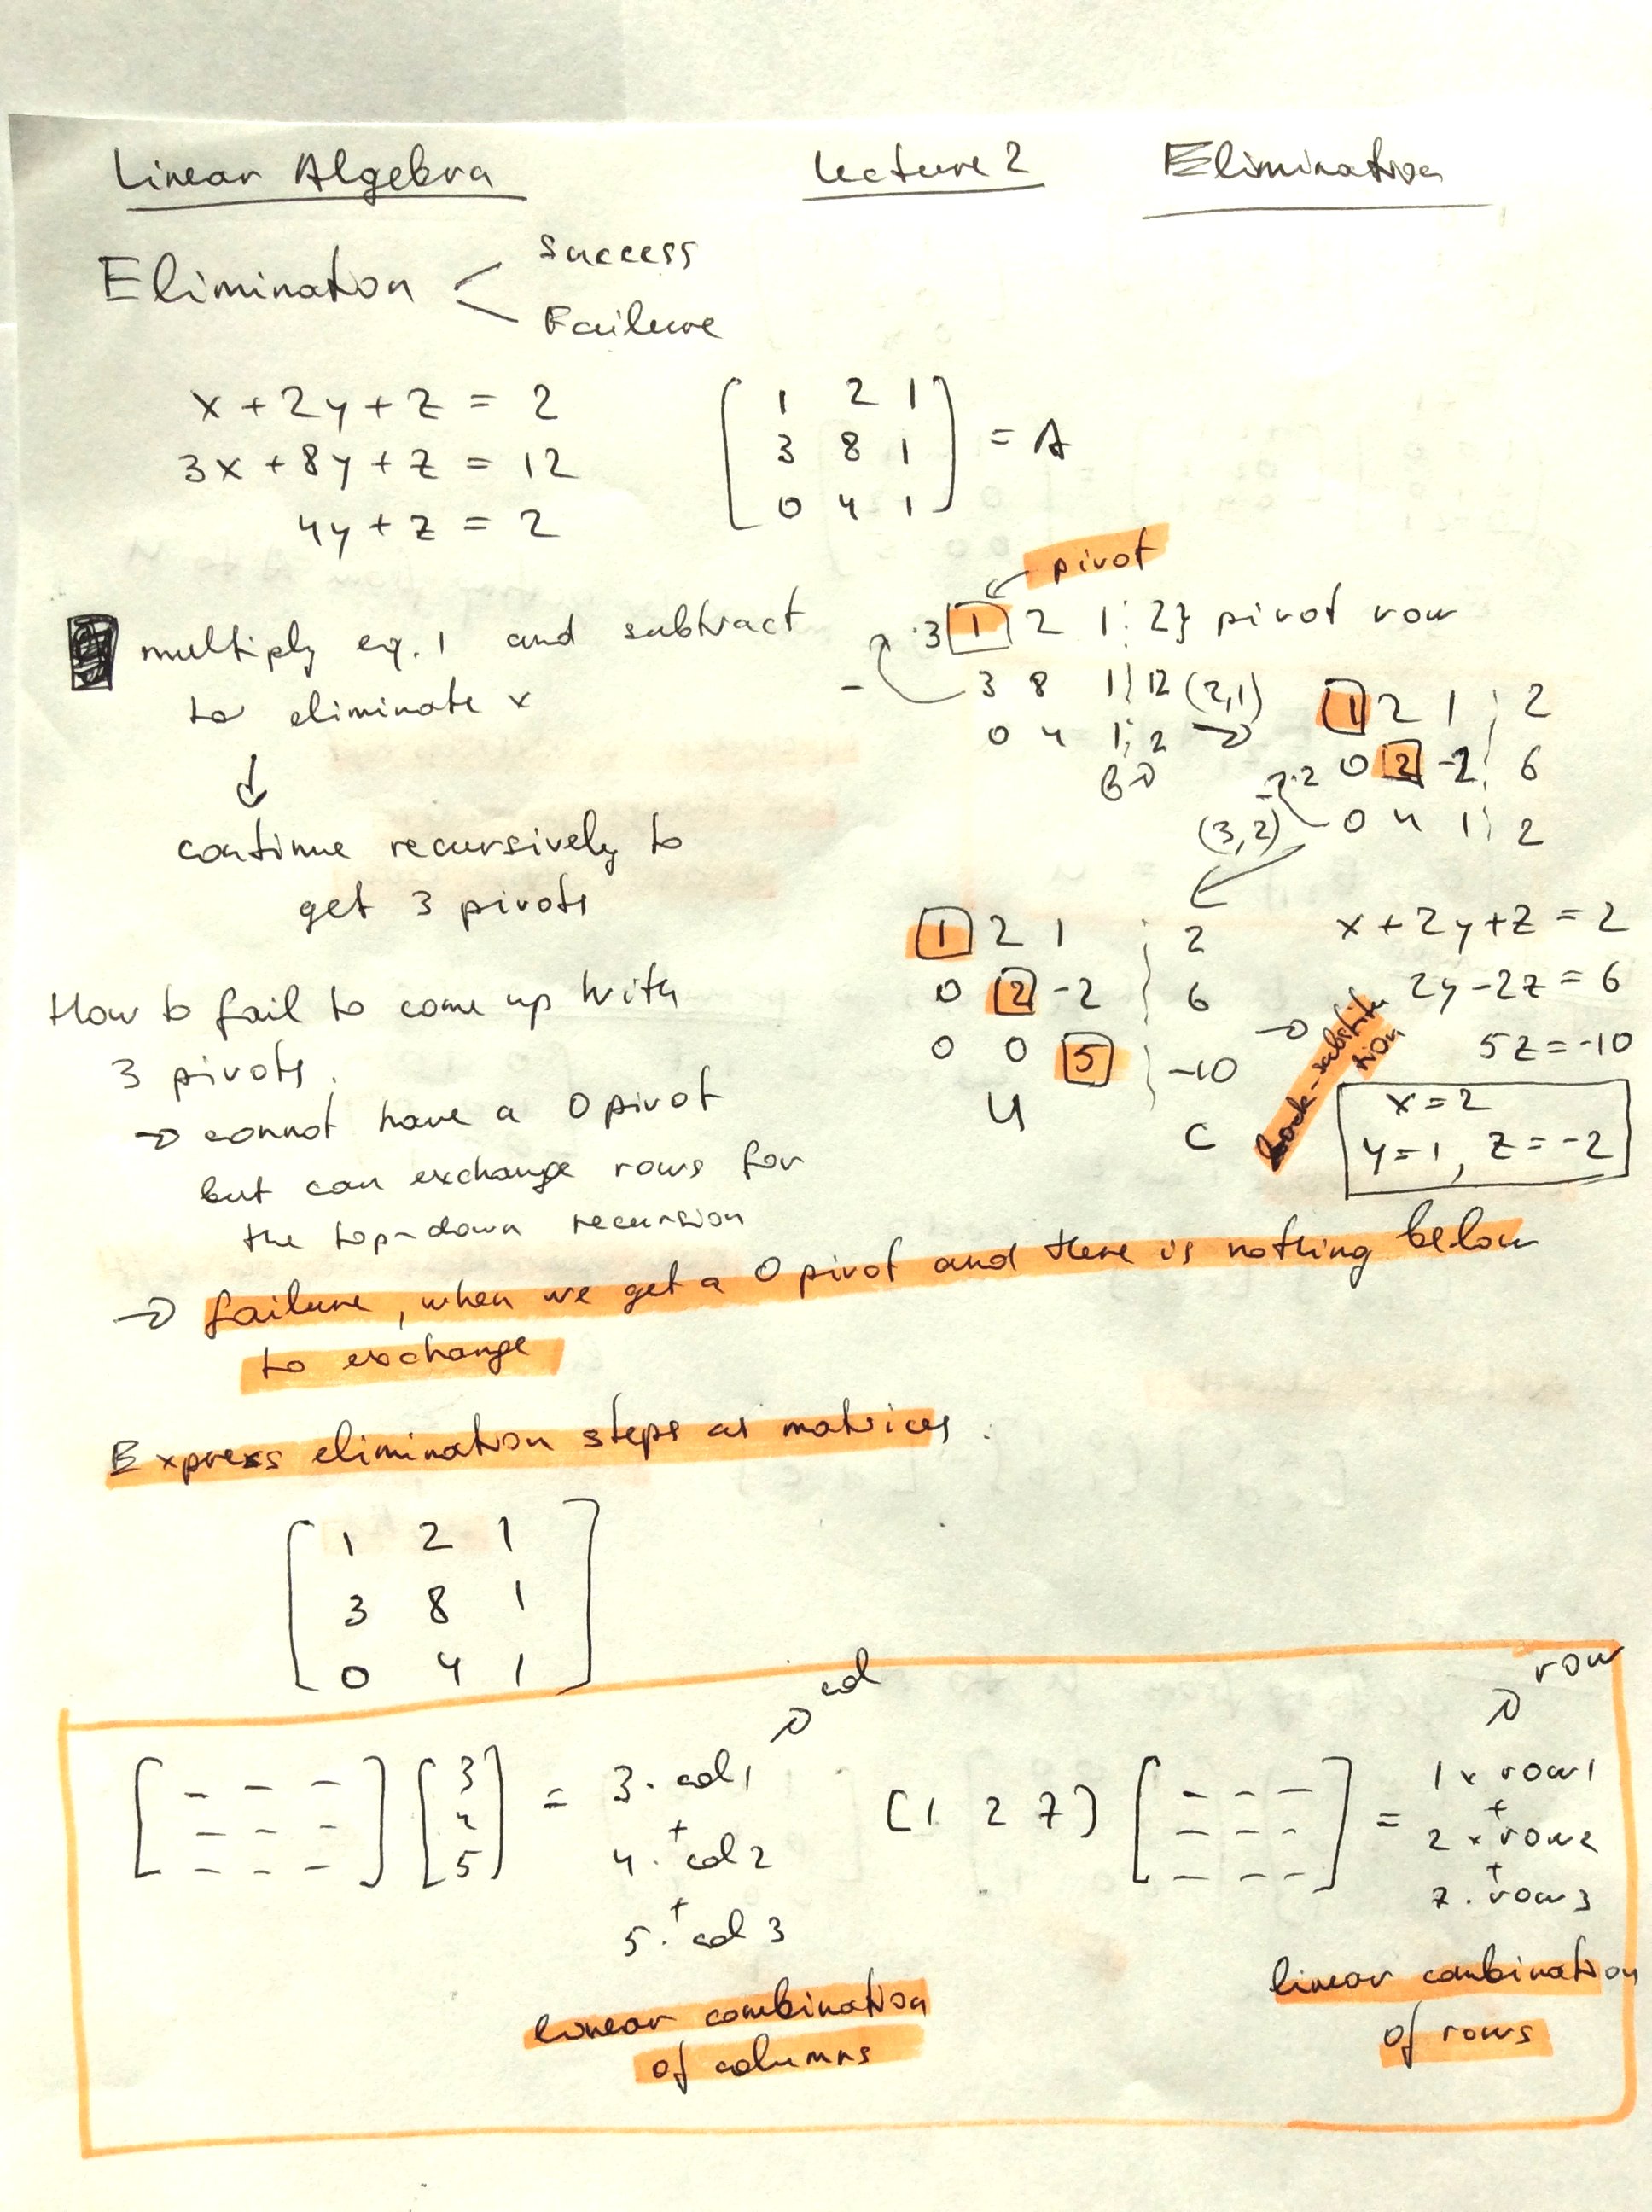 Linear Algebra Lecture 2 Elimination
Elimination < Success
Failure
x + 2y + z = 2
3x + 8y + z = 12
4y + z = 2
[ 1 2 1
3 8 1 = A
0 4 1 ]
multiply eq. 1 and subtract
to eliminate x
↓
continue recursively to
get 3 pivots
pivot
·3 1 2 1 ¦ 2 } pivot row
- 3 8 1 ¦ 12 (2,1)
0 4 1 ¦ 2 →
1 2 1 ¦ 2
·2 0 2 -2 ¦ 6
(3,2) 0 4 1 ¦ 2
1 2 1 ¦ 2
0 2 -2 ¦ 6
0 0 5 ¦ -10
U c
→ back-substitu
tion
x + 2y + z = 2
2y - 2z = 6
5z = -10
x = 2
y = 1, z = -2
How to fail to come up with
3 pivots.
→ connot have a 0 pivot
but can exchange rows for
the top-down recursion
→ failure, when we get a 0 pivot and there is nothing below
to exchange
Express elimination steps as matrices.
[ 1 2 1
3 8 1
0 4 1 ]
[ - - -
- - -
- - - ] [ 3
4
5 ] = 3 · col1 → col
+
4 · col 2
+
5 · col 3
linear combination
of columns
[1 2 7] [ - - -
- - -
- - - ] = 1 × row1 → row
+
2 × row2
+
7 · row3
linear combination
of rows